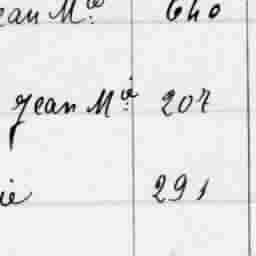 ean Mie 640
Jean Mie 207
ie 291